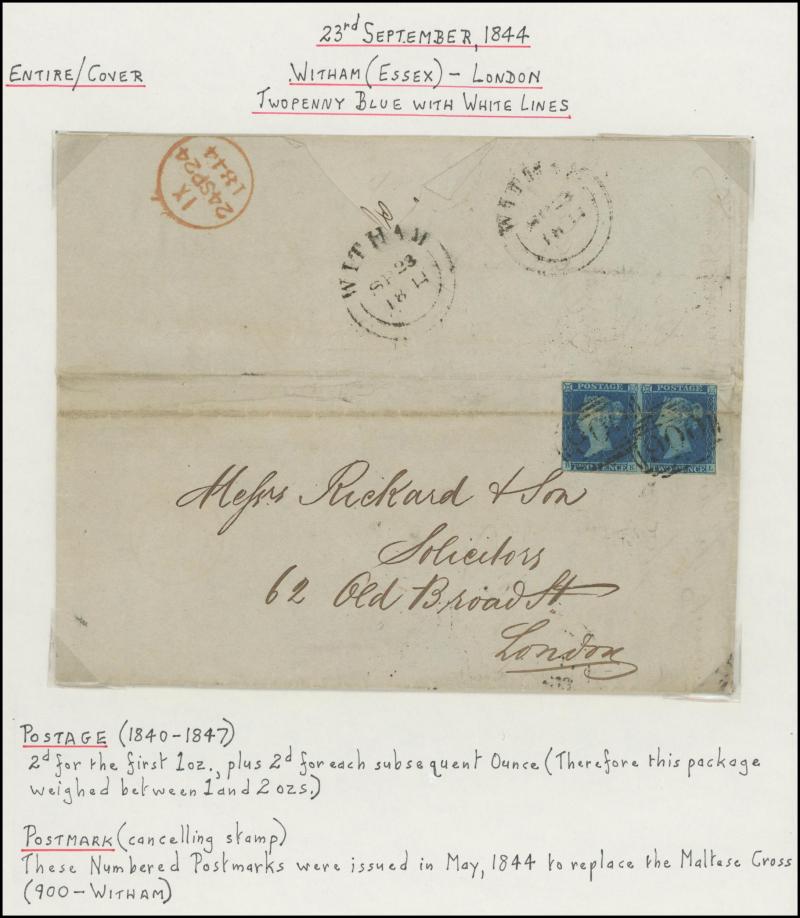 23rd SEPTEMBER, 1844
ENTIRE/COVER
WITHAM (ESSEX) - LONDON
TWOPENNY BLUE WITH WHITE LINES
IX
24SP24
1844
WITHAM
SP 23
18
WITHAM
SP 23
18
POSTAGE
TWO PENCE
POSTAGE
TWO PENCE
Messrs Rickard & Son
Solicitors
62 Old Broad St
London
POSTAGE (1840-1847)
2d for the first 1oz., plus 2d for each subsequent Ounce (Therefore this package
weighed between 1 and 2 ozs.)
POSTMARK (cancelling stamp)
These Numbered Postmarks were issued in May, 1844 to replace the Maltase Cross
(900-WITHAM)